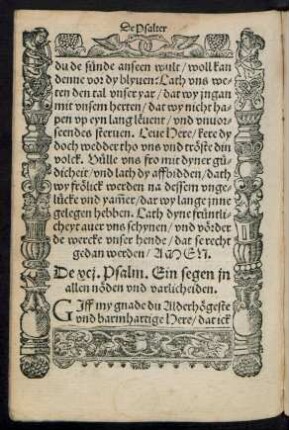 De Psalter
du de sünde anseen wult / woll kan
denne vor dy blyuen: Lath vns we-
ten den tal vnser yar / dat wy jngan
mit vnsem herten / dat wy nicht ha-
pen vp eyn lang leuent / vnd vnuor-
seendes steruen. Leue Here / kere dy
doch wedder tho vns vnd tröste din
volck. Vülle vns fro mit dyner gü-
dicheit / vnd lath dy affbidden / dath
wy frölick werden na dessem vnge-
lücke vnd yam̃er / dat wy lange jnne
gelegen hebben. Lath dyne früntli-
cheyt auer vns schynen / vnd vörder
de wercke vnser hende / dat se recht
gedan werden / AMEN.
De xcj. Psalm. Ein segen jn
allen nöden vnd varlicheiden.
GIff my gnade du Alderhögeste
vnd barmhartige Here / dat ick